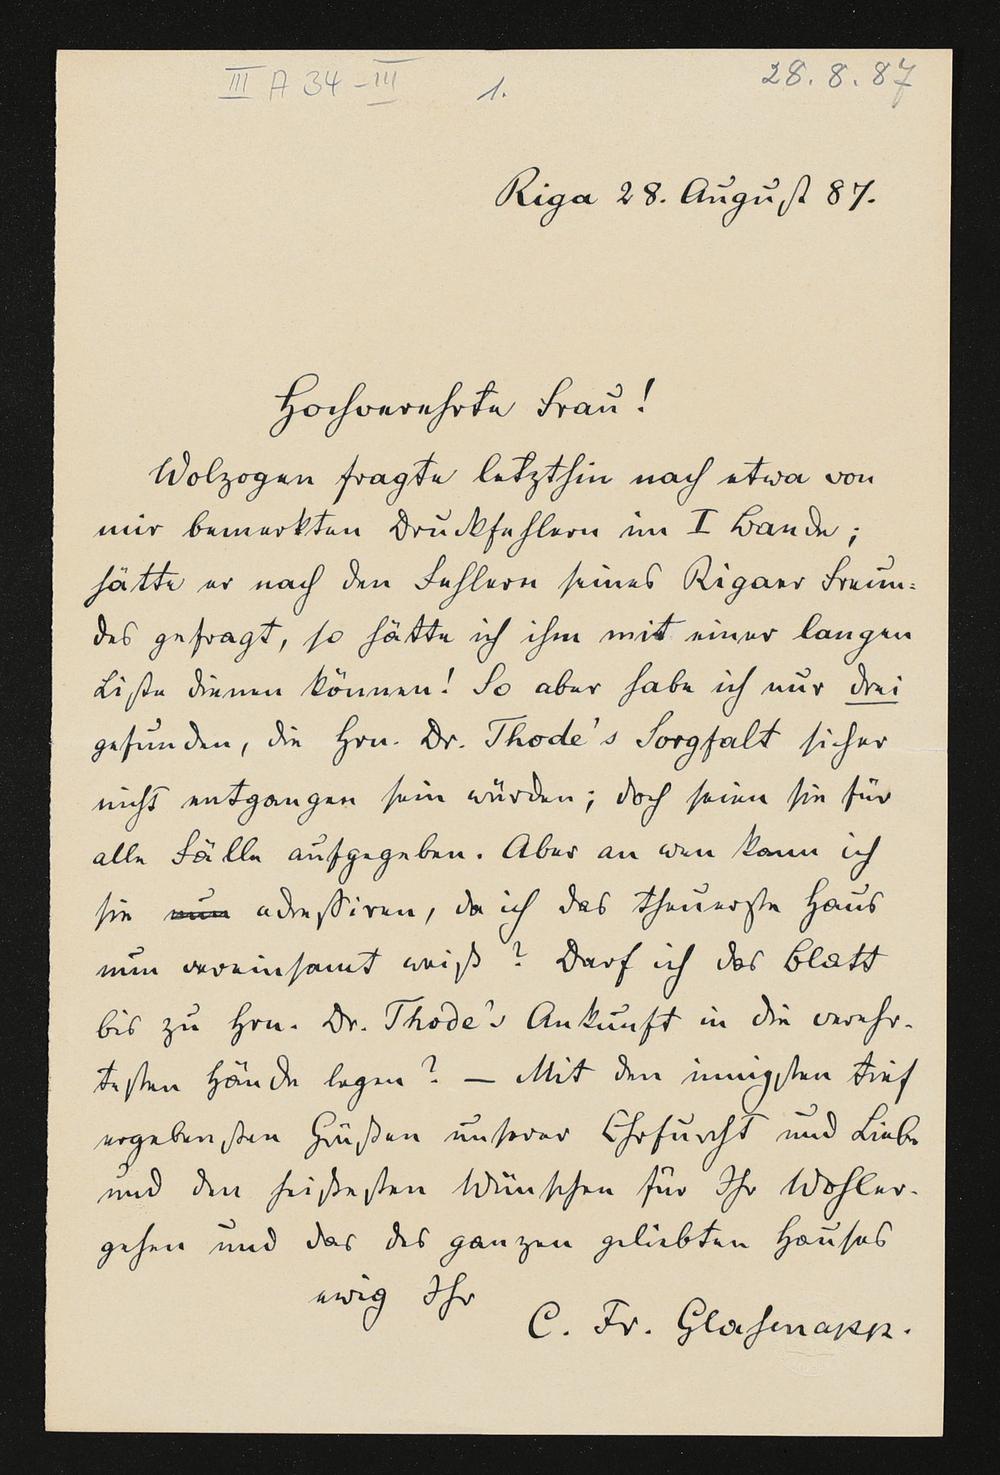 III A 34 - III
1.
28. 8. 87
Riga 28. August 87.
Hochverehrte Frau!
Wolzogen fragte letzthin nach etwa von
mir bemerkten Druckfehlern im I Bande;
hätte er nach den Fehlern seines Rigaer Freun-
des gefragt, so hätte ich ihm mit einer langen
Liste dienen können! So aber habe ich nur drei
gefunden, die Hrn. Dr. Thode's Sorgfalt sicher
nicht entgangen sein würden; doch seien sie für
alle Fälle aufgegeben. Aber an wen kann ich
sie nun adressiren, da ich das theuerste Haus
nun vereinsamt weiß? Darf ich das Blatt
bis zu Hrn. Dr. Thode's Ankunft in die verehr-
testen Hände legen? — Mit den innigsten tief
ergebensten Grüßen unserer Ehrfurcht und Liebe
und den heißesten Wünschen für Ihr Wohler-
gehen und das des ganzen geliebten Hauses
ewig Ihr
C. Fr. Glasenapp.